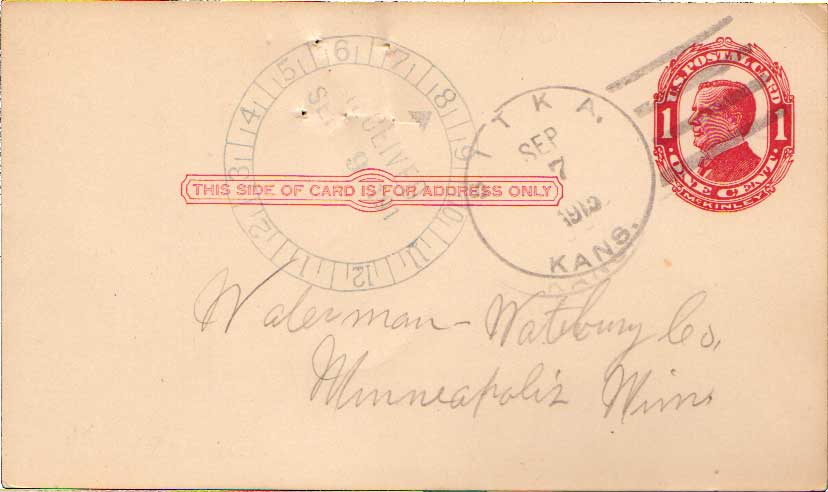 U.S. POSTAL CARD
1 1
ONE CENT.
McKINLEY
ITKA.
SEP
7
KANS.
5 6 7 8 9 10 11 12 1 2 3 4
THIS SIDE OF CARD IS FOR ADDRESS ONLY
Waterman-Watbury Co,
Minneapolis Minn